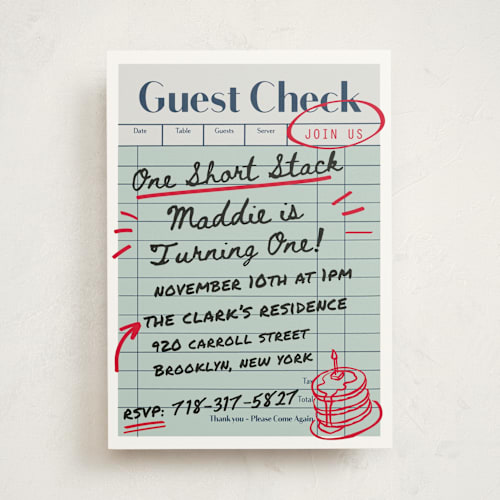 Guest Check
Date Table Guests Server JOIN US
One Short Stack
Maddie is
Turning One!
NOVEMBER 10TH AT 1PM
THE CLARK'S RESIDENCE
920 CARROLL STREET
BROOKLYN, NEW YORK
Tax
RSVP: 718-317-5827 Total
Thank you - Please Come Again